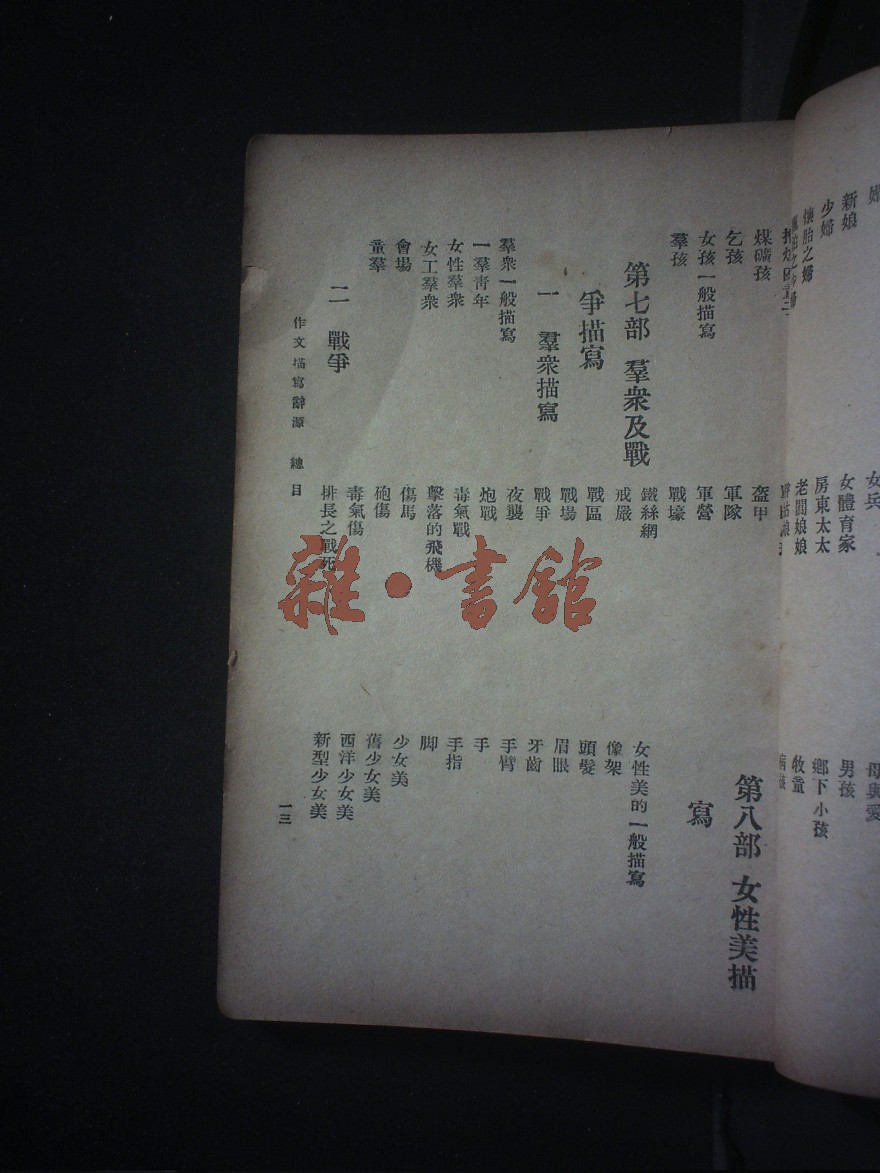 母與愛
男孩
鄉下小孩
牧童
女兵
女體育家
房東太太
老闆娘娘
新娘
少婦
懷胎之婦
煤礦孩
乞孩
女孩一般描寫
羣孩
第七部 羣衆及戰
爭描寫
一 羣衆描寫
羣衆一般描寫
一羣青年
女性羣衆
女工羣衆
會場
童羣
二 戰爭
盔甲
軍隊
軍營
戰壕
鐵絲網
戒嚴
戰區
戰場
戰爭
夜襲
炮戰
毒氣戰
擊落的飛機
傷馬
砲傷
毒氣傷
排長之戰死
第八部 女性美描
寫
女性美的一般描寫
像架
頭髮
眉眼
牙齒
手臂
手
手指
脚
少女美
舊少女美
西洋少女美
新型少女美
作文描寫辭源 總目
一三
雜·書館